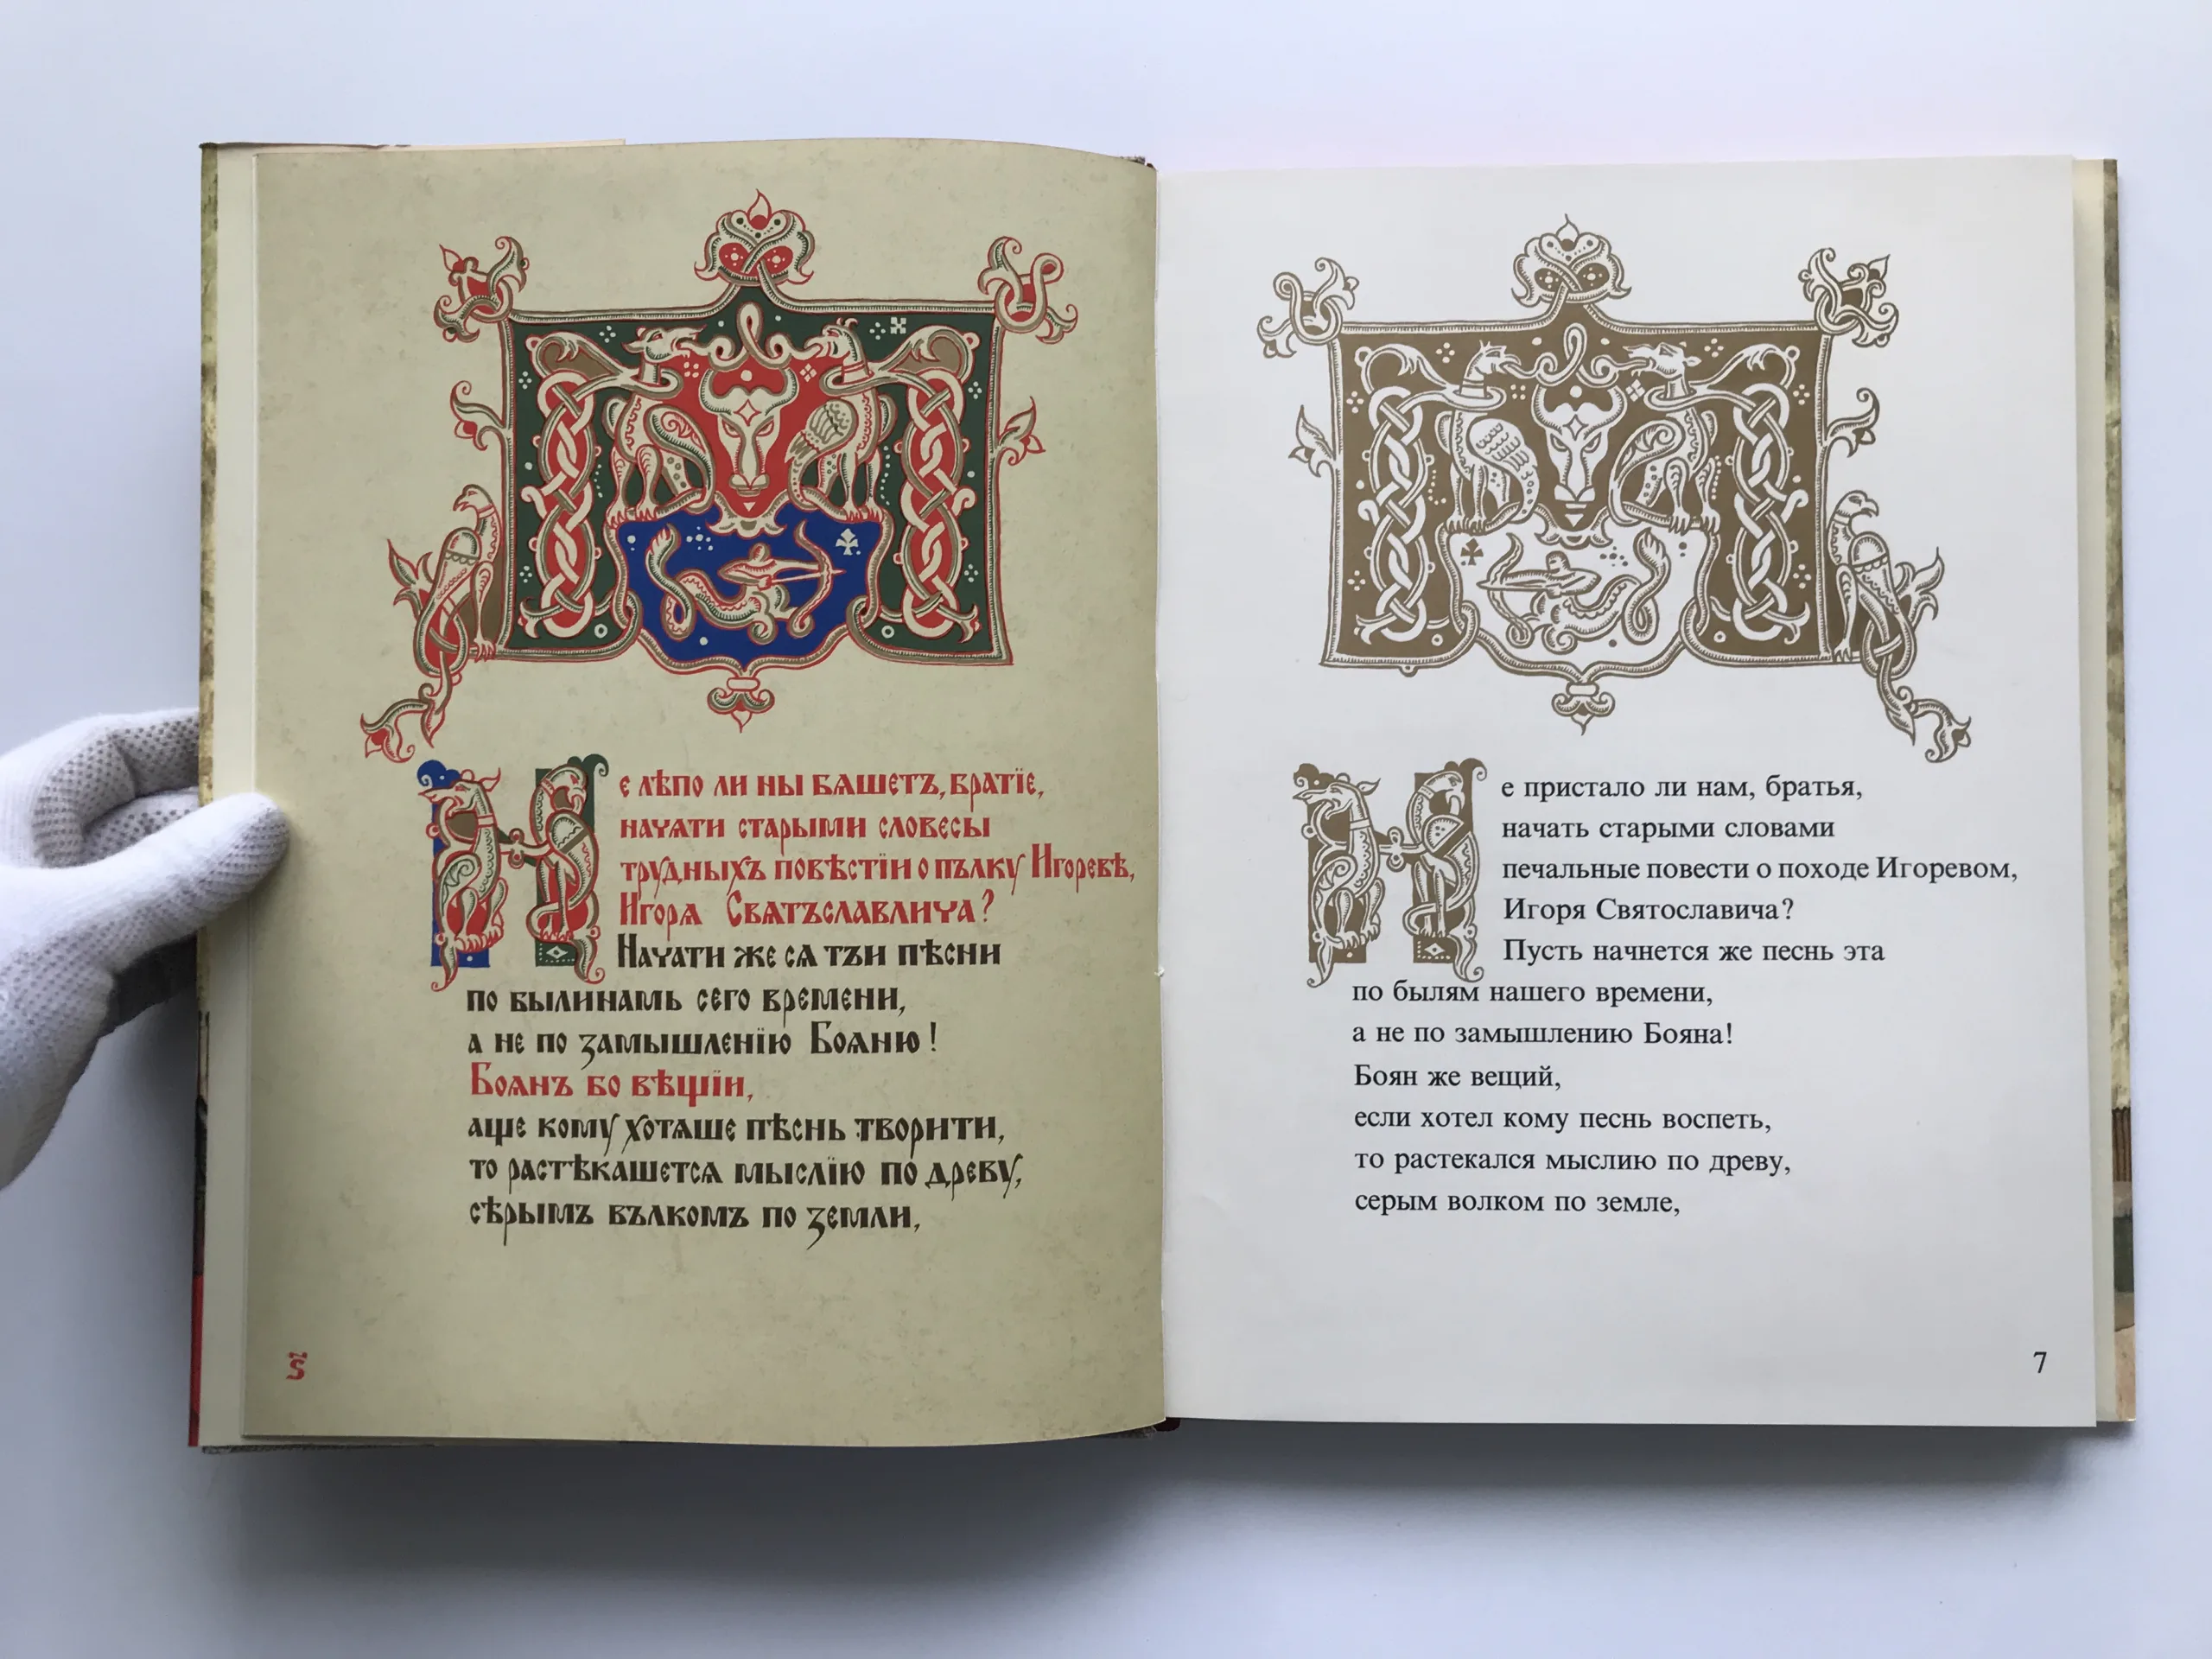 Не лѣпо ли ны бяшетъ, братїе,
начяти старыми словесы
трудныхъ повѣстїи о пълку Игоревѣ,
Игоря Святъславлича?
Начати же ся тъи пѣсни
по былинамь сего времени,
а не по замышленїю Бояню!
Боянъ бо вѣщїи,
аще кому хотяше пѣснь творити,
то растѣкашется мыслїю по древу,
сѣрымъ вълкомъ по земли,
Ѕ
Не пристало ли нам, братья,
начать старыми словами
печальные повести о походе Игоревом,
Игоря Святославича?
Пусть начнется же песнь эта
по былям нашего времени,
а не по замышлению Бояна!
Боян же вещий,
если хотел кому песнь воспеть,
то растекался мыслию по древу,
серым волком по земле,
7